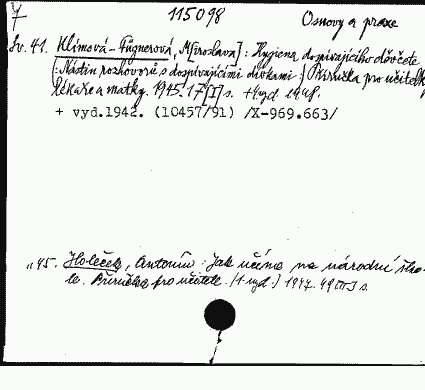 7 115098 Osnovy a praxe
Sv. 41. Klímová-Fügnerová, M[iroslava]: Hygiena dospívajícího děvčete
(: Nástin rozhovorů s dospívajícími dívkami :) Příručka pro učitele,
lékaře a matky. 1945. 17[I] s. + 4 vyd. 1948.
+ vyd.1942. (10457/91) /X-969.663/
„ 45. Holeček, Antonín: Jak učíme na národní ško-
le. Příručka pro učitele. (1 vyd.) 1947. 49 [III] s.